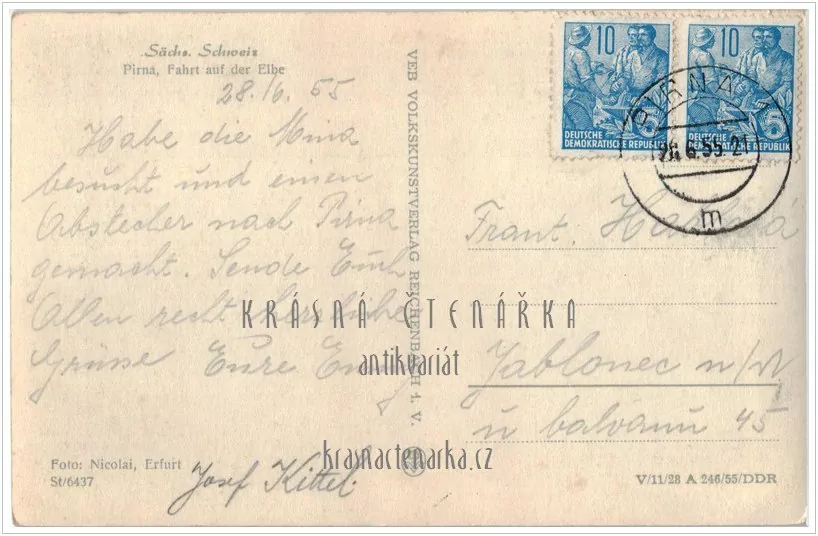 Sächs. Schweiz
Pirna, Fahrt auf der Elbe
28./6. 55
Habe die Mina
besucht und einen
Abstecher nach Pirna
gemacht. Sende Euch
Allen recht herzliche
Grüsse Eure
Josef Kittel.
Foto: Nicolai, Erfurt
St/6437
VEB VOLKSKUNSTVERLAG REICHENBACH i. V.
10
10
5
5
DEUTSCHE
DEMOKRATISCHE REPUBLIK
DEUTSCHE
DEMOKRATISCHE REPUBLIK
PIRNA
6.55-21
m
Frant.
Jablonec n/N
u balvanu 45
V/11/28 A 246/55/DDR
KRÁSNÁ ČTENÁŘKA
antikvariát
krasnactenarka.cz